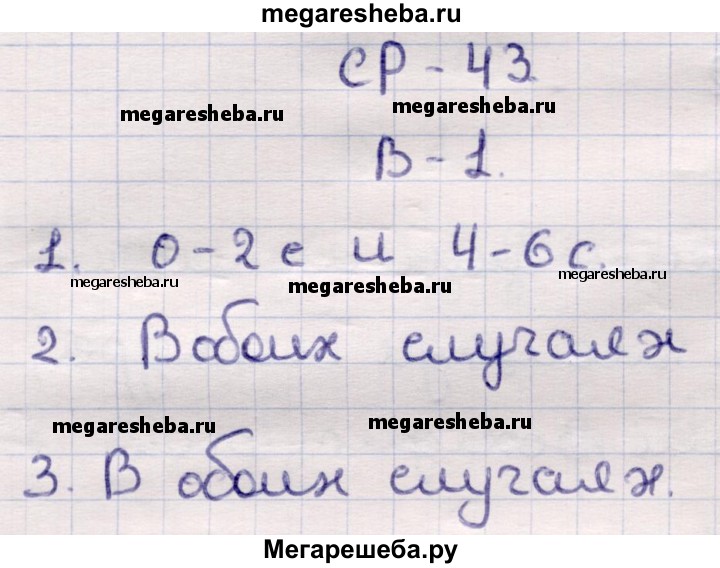 megaresheba.ru
СР - 43
megaresheba.ru megaresheba.ru
В - 1.
1. 0 - 2 с и 4 - 6 с.
megaresheba.ru megaresheba.ru megaresheba.ru
2. В обоих случаях
megaresheba.ru megaresheba.ru
3. В обоих случаях.
Мегарешеба.ру